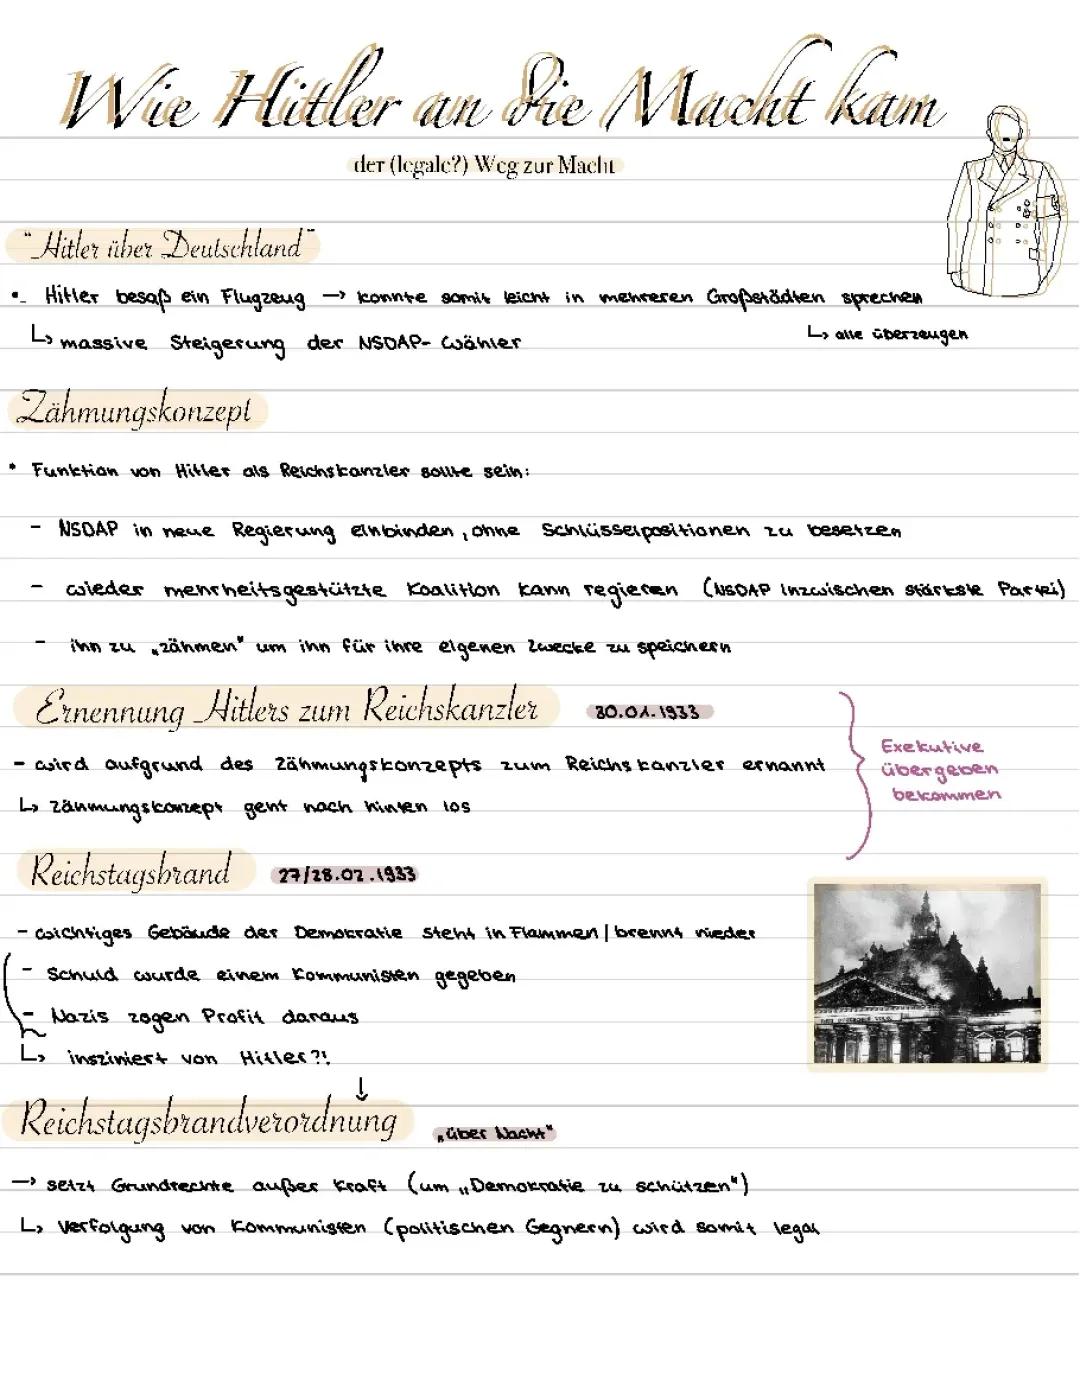 Wie Hitler an die Macht kam
der (legale?) Weg zur Macht
"Hitler über Deutschland"
•- Hitler besaß ein Flugzeug → konnte somit leicht in mehreren Großstädten sprechen
↳ massive Steigerung der NSDAP-Wähler
↳ alle überzeugen
Zähmungskonzept
• Funktion von Hitler als Reichskanzler sollte sein:
- NSDAP in neue Regierung einbinden, ohne Schlüsselpositionen zu besetzen
- wieder mehrheitsgestützte Koalition kann regieren (NSDAP inzwischen stärkste Partei)
- ihn zu „zähmen" um ihn für ihre eigenen Zwecke zu speichern
Ernennung Hitlers zum Reichskanzler 30.01.1933
- wird aufgrund des Zähmungskonzepts zum Reichskanzler ernannt
↳ Zähmungskonzept geht nach hinten los
Exekutive
übergeben
bekommen
Reichstagsbrand 27/28.02.1933
- wichtiges Gebäude der Demokratie steht in Flammen / brennt nieder
- Schuld wurde einem Kommunisten gegeben
- Nazis zogen Profit daraus
↳ insziniert von Hitler?!
↓
Reichstagsbrandverordnung „über Nacht"
→ setzt Grundrechte außer Kraft (um „Demokratie zu schützen")
↳ Verfolgung von Kommunisten (politischen Gegnern) wird somit legal